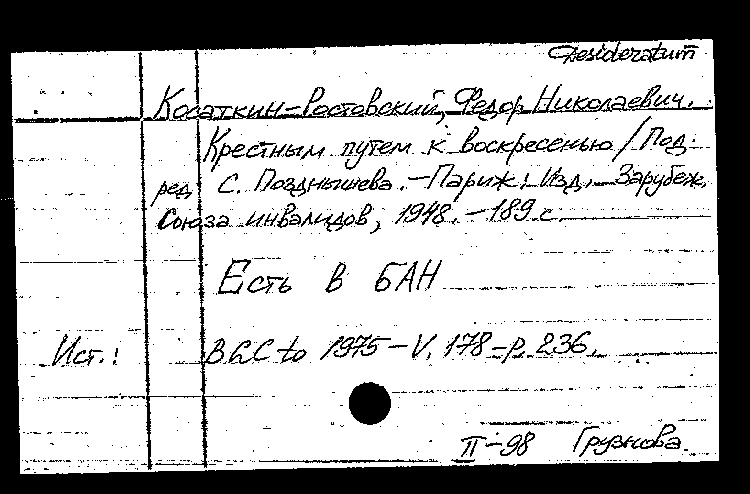 Desideratum
Косаткин-Ростовский, Федор Николаевич.
Крестным путем к воскресенью / Под
ред. С. Позднышева. – Париж: Изд. Зарубеж.
Союза инвалидов, 1948. – 189 с.
Есть в БАН
Ист.: BLC to 1975 – V. 178 – p. 236.
II – 98 Грузнова.